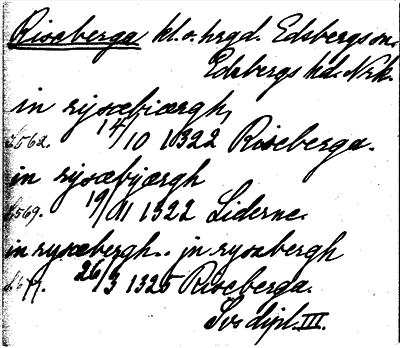 Riseberga kl. o. hrgd. Edsbergs sn.
Edsbergs hd. Nrk.
in rysæbiærgh,
2562. 14/10 1322 Riseberga.
in rysæbyærgh
2569. 19/11 1322 Liderne.
in rysæbergh.. jn rysabergh
26/3 1325 Riseberga.
Sv. dipl. III.